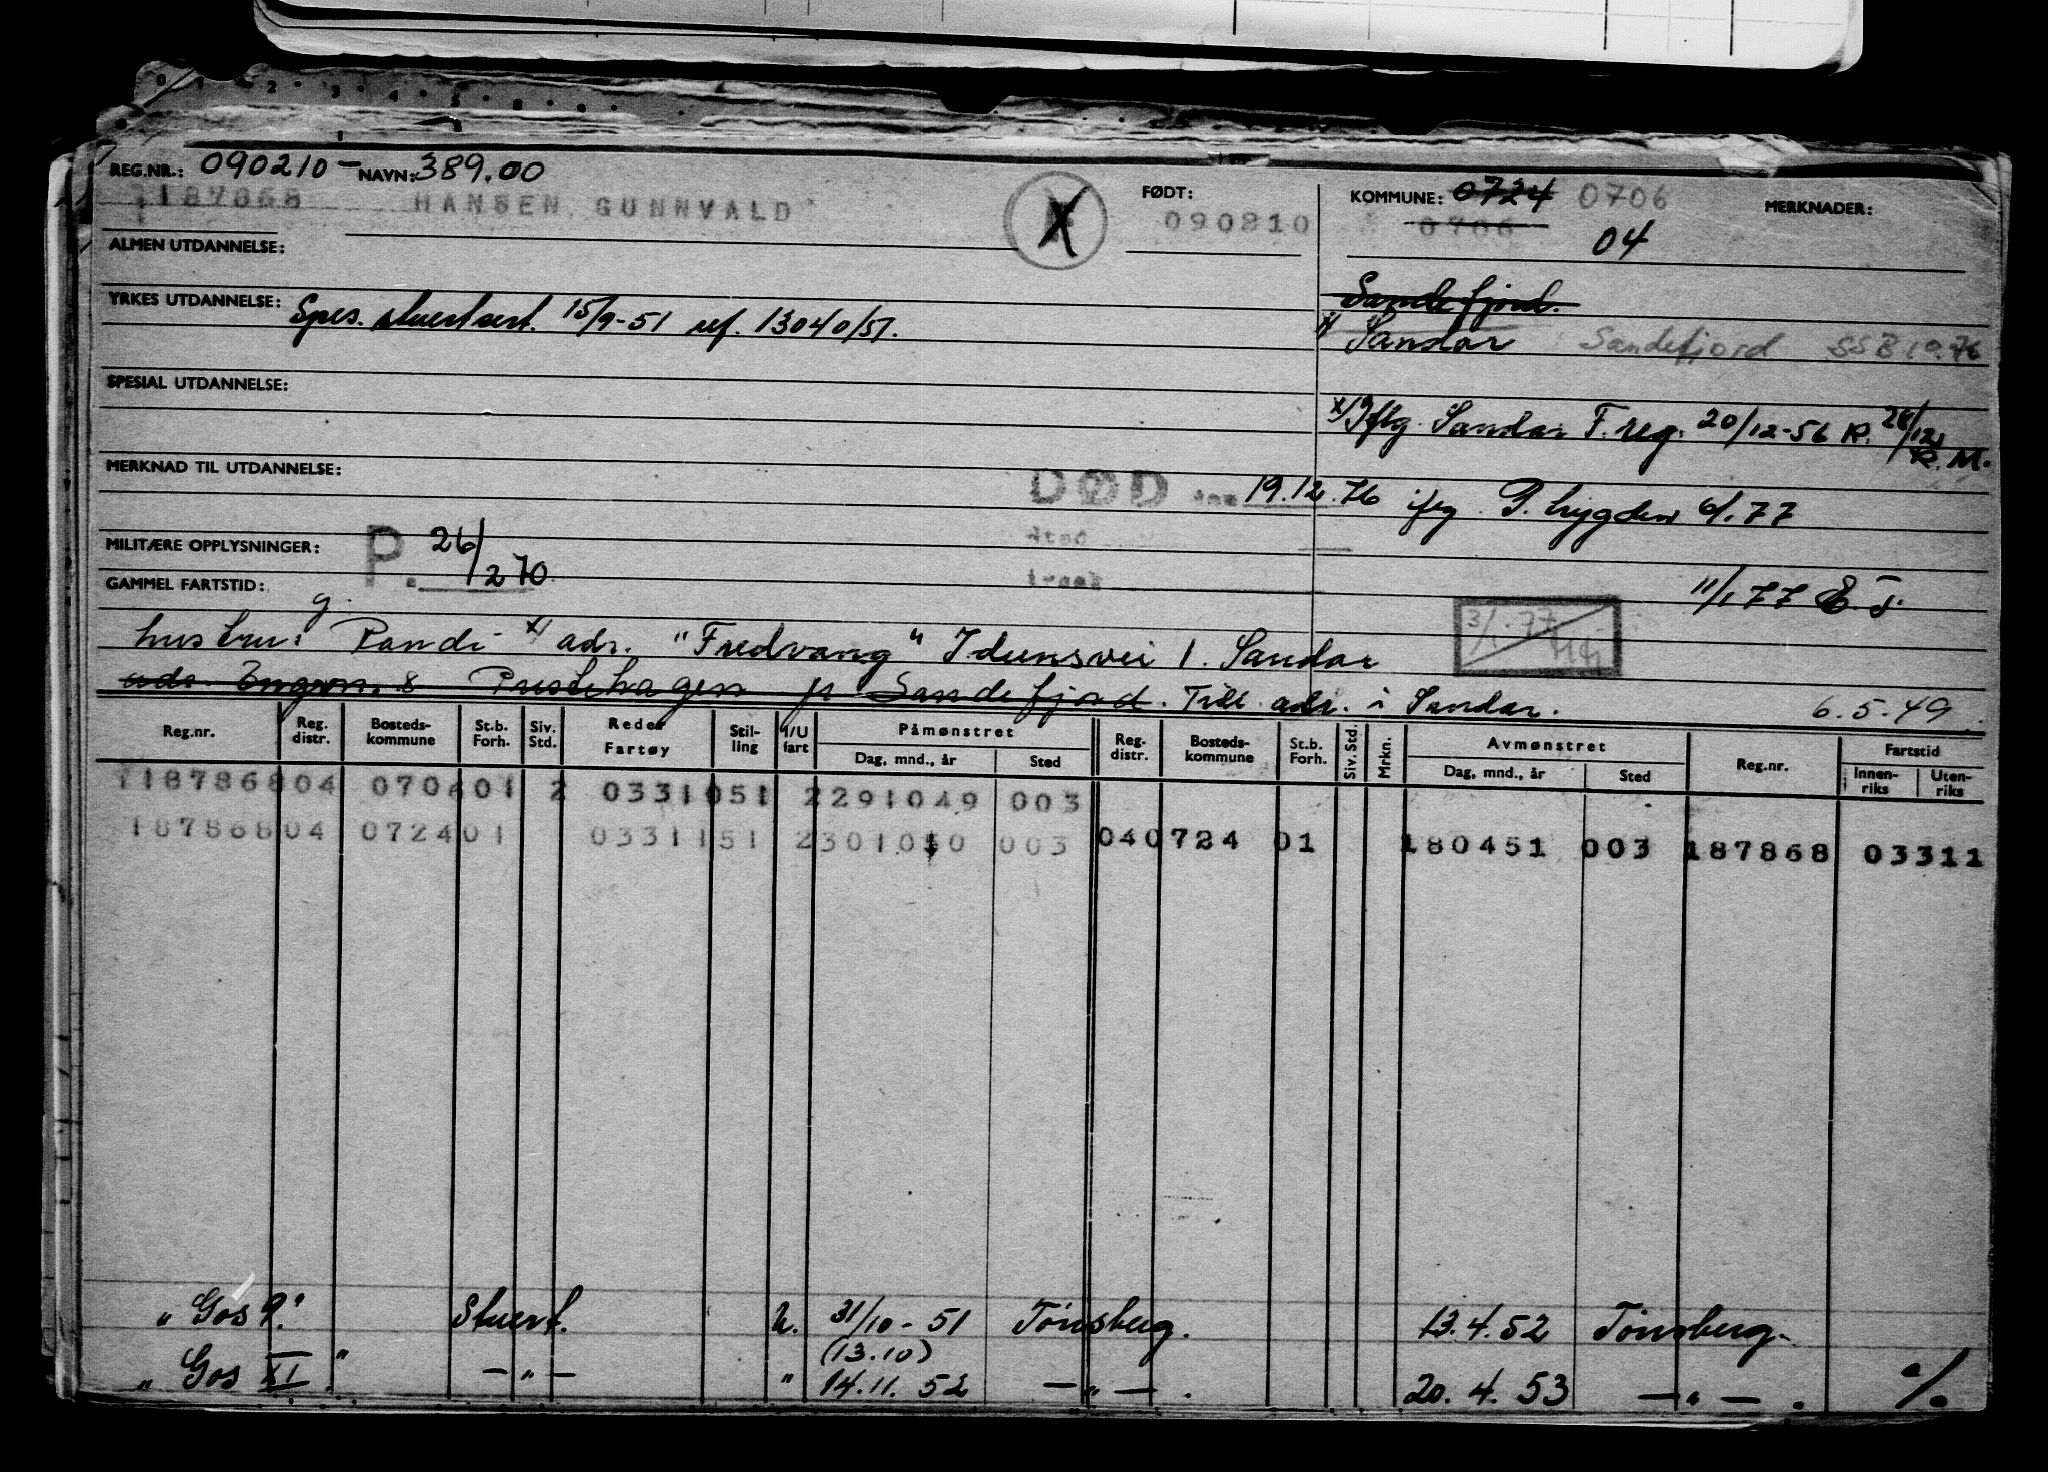 0 1 2 3 4 5 6
REG.NR.: 090210 - NAVN: 389.00 FØDT: KOMMUNE: 0724 0706 MERKNADER:
187868 HANSEN GUNNVALD X 090210 0706
04
ALMEN UTDANNELSE:
Sandefjord.
YRKES UTDANNELSE: Spes. stuertsert. 15/9-51 ref. 13040/51.
x/ Sandar Sandefjord SSB 19.76
SPESIAL UTDANNELSE:
x/ Iflg. Sandar F.reg. 20/12-56 R. 28/12 R.M.
MERKNAD TIL UTDANNELSE:
DØD den 19.12.76 iflg P. Lygden 6/1.77
Sted
MILITÆRE OPPLYSNINGER: P. 26/270
GAMMEL FARTSTID:
11/1 77 E.T.
3/1.77
g.
hustru: Randi x/ adr. "Fredvang" Idunsvei 1. Sandar
adr. Engvn. 8 Prestehagen pr Sandefjord. Till adr. i Sandar. 6.5.49.
Reg.nr. Reg. distr. Bosteds-kommune St.b. Forh. Siv. Std. Rederi Fartøy Stil-ling I/U fart Påmønstret Dag, mnd., år Sted Reg. distr. Bosteds-kommune St.b. Forh. Siv. Std. Mrkn. Avmønstret Dag, mnd., år Sted Reg.nr. Fartstid Innen-riks Uten-riks
187868 04 0706 01 2 03310 51 2 291049 003
187868 04 0724 01 03311 51 2 301050 003 04 0724 01 180451 003 187868 03311
"Gos 9." Stuert. U. 31/10-51 Tønsberg. 13.4.52 Tønsberg.
(13.10)
"Gos XI". -"- " 14.11.52 -"-. 20.4.53 -"-. %